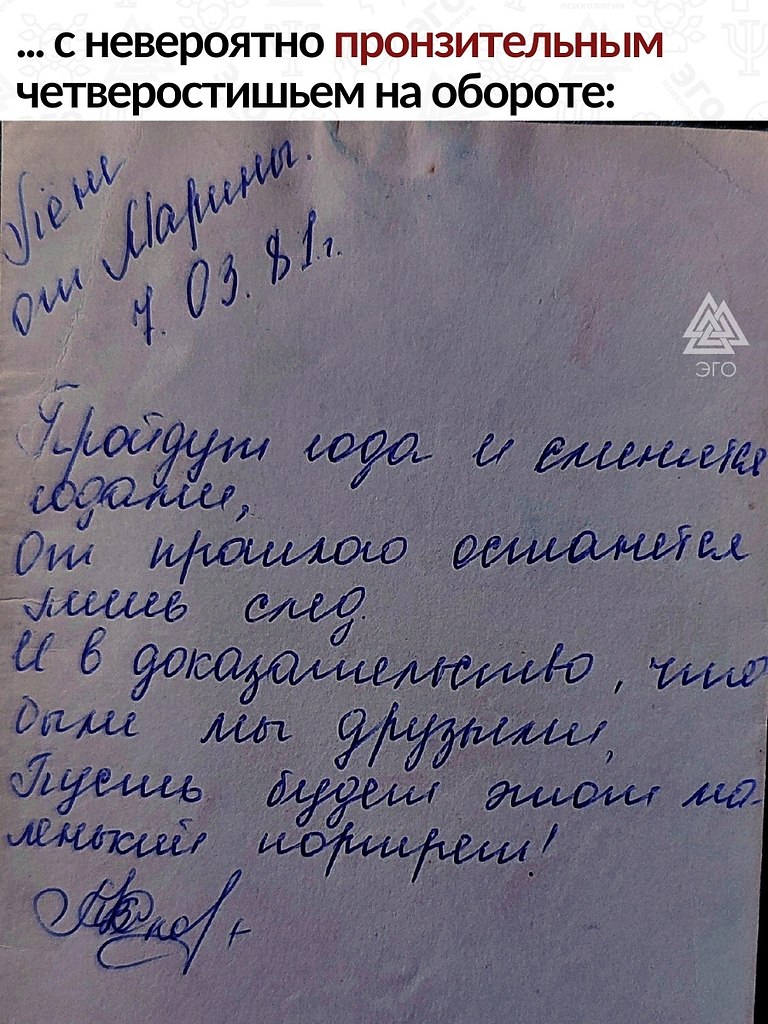 ... с невероятно пронзительным
четверостишьем на обороте:
Лёни
от Марины.
7. 03. 81г.
ЭГО
Пройдут года и сменится
годами,
От прошлого останется
лишь след.
И в доказательство, что
были мы друзьями,
Пусть будет этот ма-
ленький портрет!